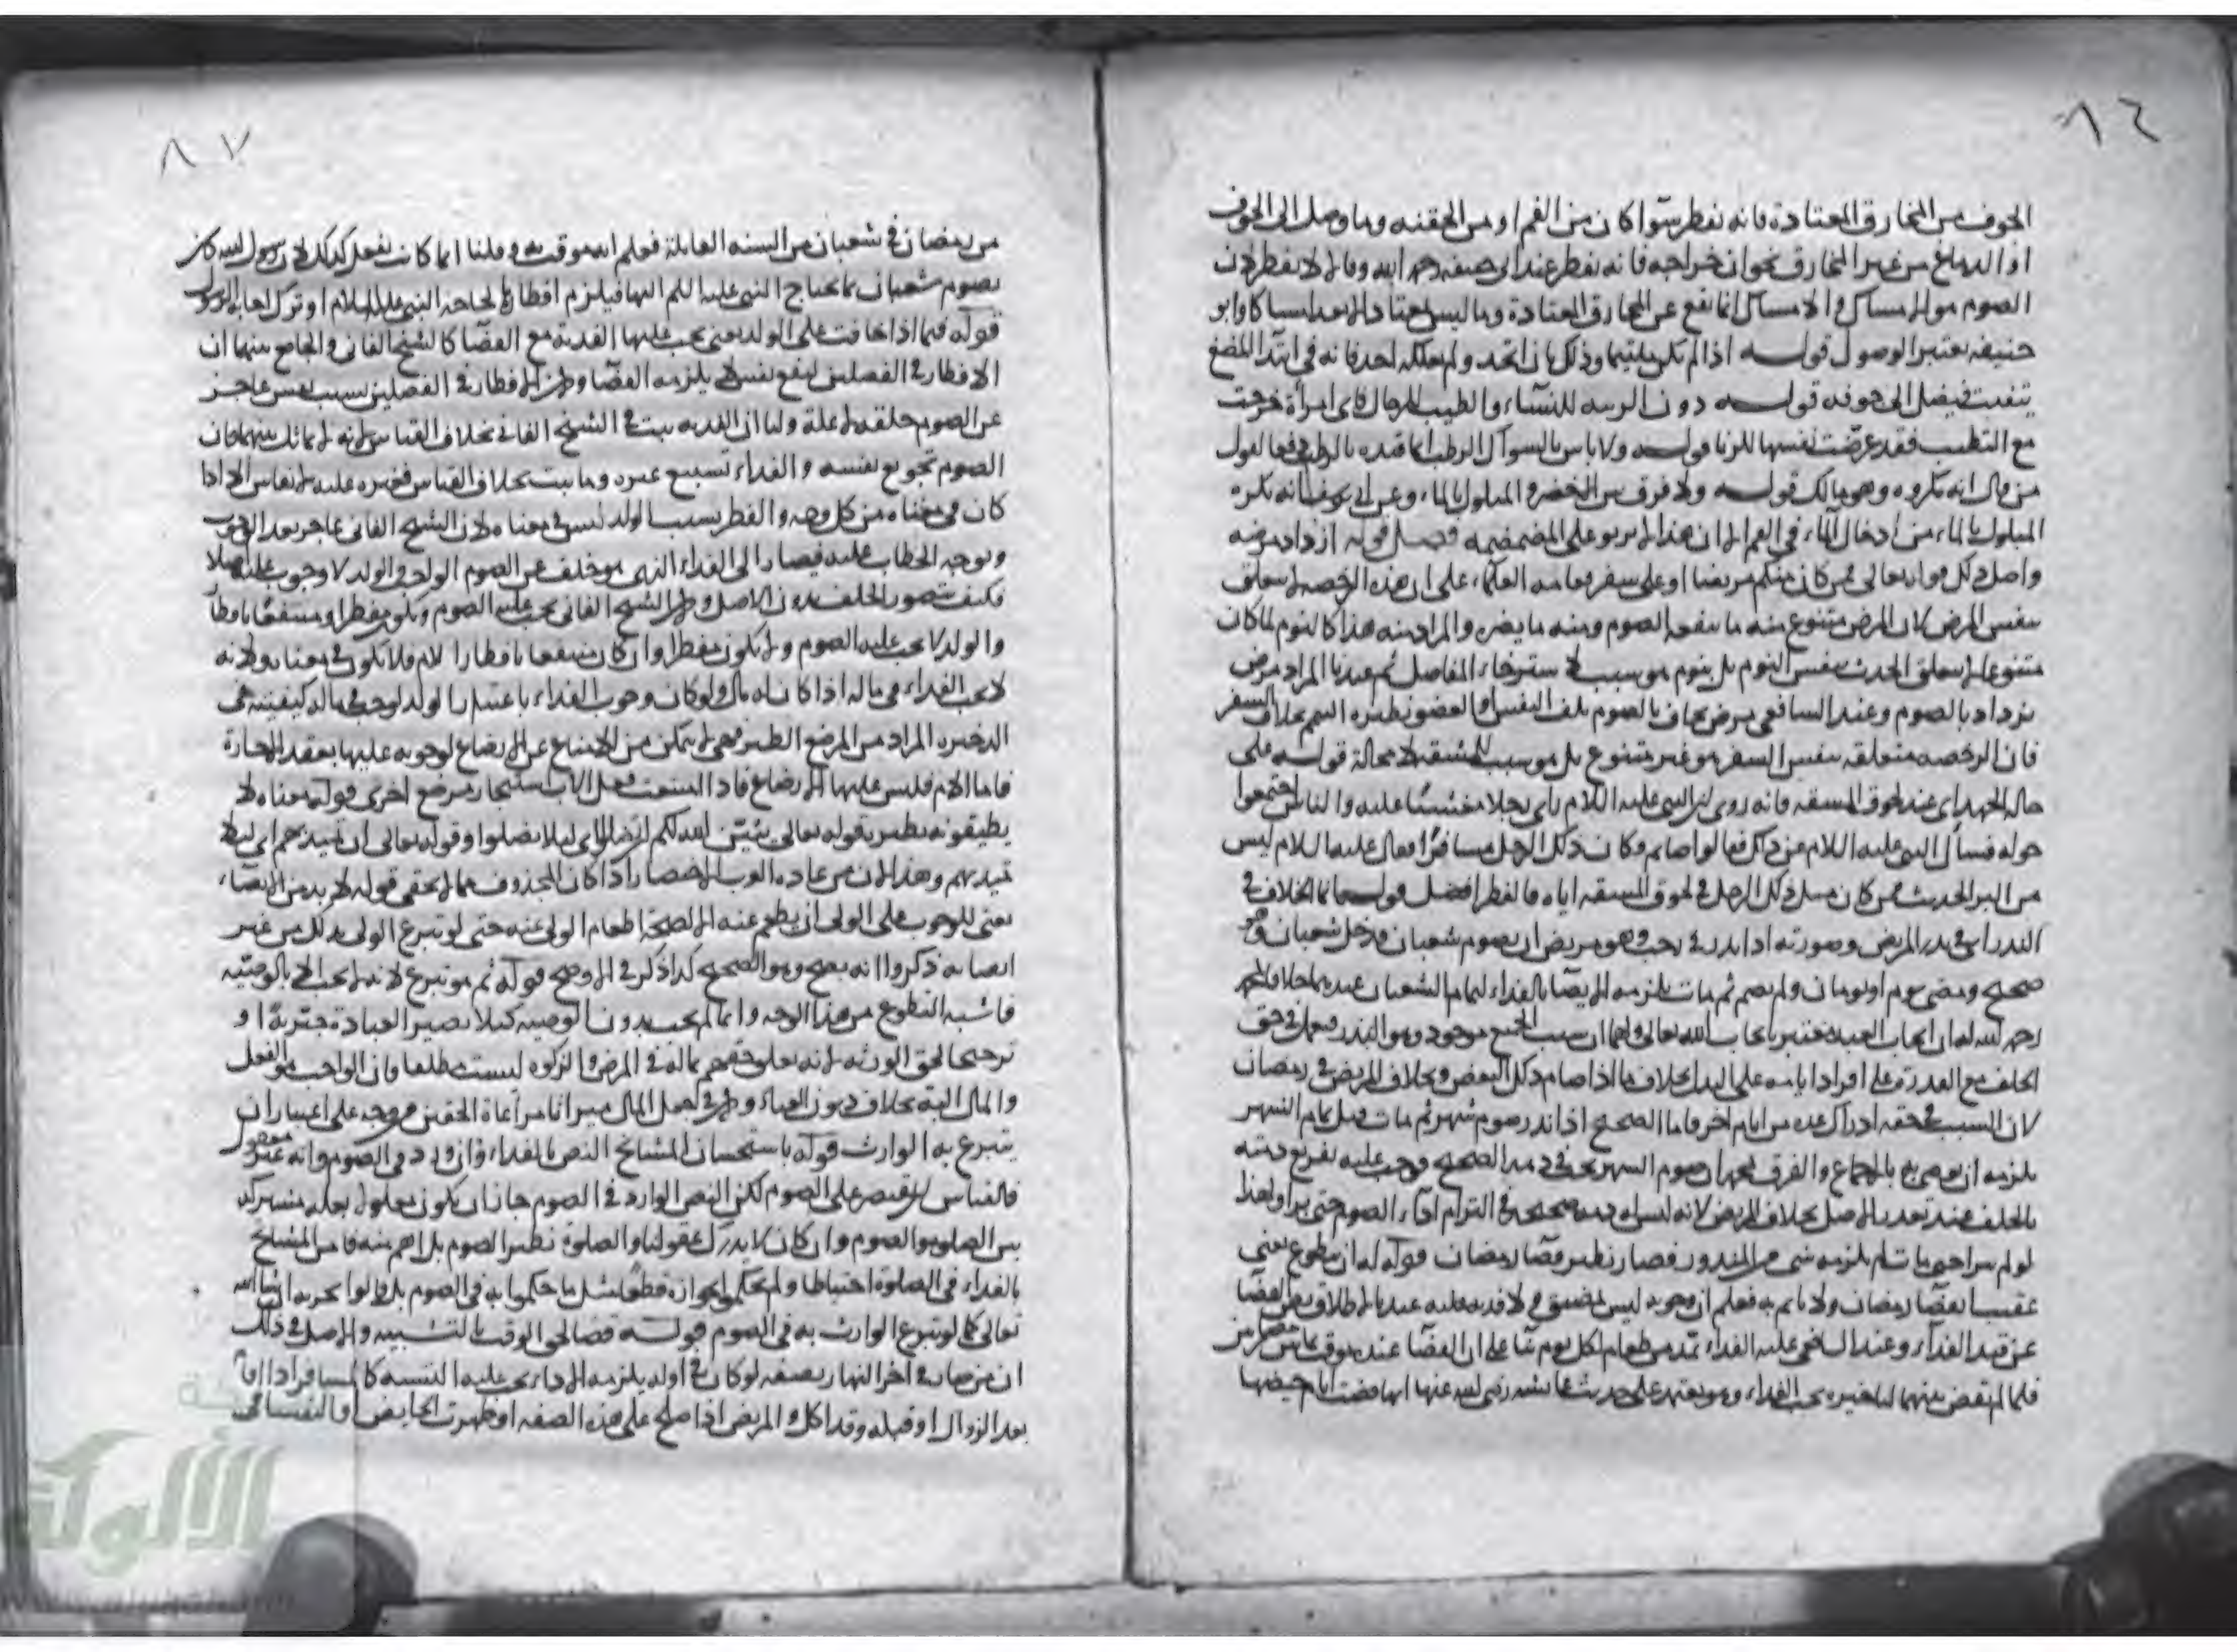 ٨٦
الجوف من المخارق المعتادة فانه يفطر سوا كان من الفم او من الحقنه وما وصل الى الجوف
او الدماغ من غير المخارق نحو ان خراجه فانه يفطر عند ابى حنيفه رحمه الله وقالا لا يفطر لان
الصوم هو الامساك والامساك انما يقع عن المخارق المعتادة وما ليس بمعتاد لا يعد امساكا وابو
حنيفه يعتبر الوصول قوله اذا لم يكن ملتيما وذلك بان اتخد ولم يعلكه احد فانه فى ابتدا المضغ
يتفتت فيصل الى جوفه قوله دون الريبه للنساء والطيب للرجال فاى امرأة خرجت
مع التطيب فقد عرضت نفسها للزنا قوله ولا باس بالسواك الرطب انما قيده بالرطب دفعا لقول
من قال انه مكروه وهو مالك قوله ولا فرق بين الاخضر والمبلول بالماء وعن ابى يوسف انه يكره
المبلول بالماء من ادخال الماء فى الفم الا ان هذا لا يربو على المضمضه فصل قوله ازداد مرضه
واصل ذلك قوله تعالى فمن كان منكم مريضا او على سفر فعامه العلماء على ان هذه الرخصه لا تتعلق
بنفس المرض لان المرض متنوع منه ما ينفعه الصوم ومنه ما يضره والمراد منه هذا كالنوم لما كان
متنوعا لم يتعلق الحدث بنفس النوم بل بنوم هو سبب لاسترخاء المفاصل ثم عندنا المراد مرض
يزداد بالصوم وعند الشافعى مرض يخاف بالصوم تلف النفس او العضو نظيره التيمم بخلاف السفر
فان الرخصه متعلقه بنفس السفر هو غير متنوع بل هو سبب للمشقه لا محالة قوله على
حاله الجهد اى عند لحوق المشقه فانه روى ان النبى عليه السلام راى رجلا مغشيا عليه والناس اجتمعوا
حوله فسال النبى عليه السلام عن ذلك فقالوا صايم وكان ذلك الرجل مسافرا فقال عليه السلام ليس
من البر الحديث فمن كان مثل ذلك الرجل فى لحوق المشقه اياه فالفطر افضل قوله وانما الخلاف فى
النذر اى فى نذر المريض وصورته اذا نذر فى رجب وهو مريض ان يصوم شعبان فدخل شعبان وهو
صحيح ومضى يوم او يومان ولم يصم ثم مات يلزمه الايصا بالفداء لتمام الشعبان عندهما خلافا لمحمد
رحمه الله له ان ايجاب العبد معتبر بايجاب الله تعالى ولهما ان سبب الجميع موجود وهو النذر فيعمل فى حق
الخلف مع القدرة على افراد ايامه على البدل بخلاف ما اذا صام ذلك البعض وبخلاف المريض فى رمضان
لان السبب فى حقه ادراك عده من ايام اخر فاما الصحيح اذا نذر صوم شهر ثم مات قبل تمام الشهر
يلزمه ان يوصى به بالاجماع والفرق لمحمد ان صوم الشهر صح فى ذمه الصحيح ووجب عليه تفريغ ذمته
بالخلف عند تعذر الاصل بخلاف المريض لانه ليس له ذمه صحيحه فى التزام اداء الصوم حتى يبرا ولهذا
لو لم يبرا حتى مات لم يلزمه شى من المنذور فصار نظير قضا رمضان قوله له ان يتطوع يعنى
عقيب قضا رمضان ولا ياثم به فعلم ان وجوبه ليس بمضيق قوله لا فديه عليه عندنا لاطلاق نص القضا
عن قيد الفداء وعند الشافعى عليه الفداء مد من طعام لكل يوم بنا على ان القضا عنده موقت بما بين رمضانين
فلما لم يقض بينهما لتاخيره يجب الفداء وهو يعتمد على حديث عائشه رضى الله عنها انها قضت ايام حيضها
٨٧
من رمضان فى شعبان من السنه القابلة فعلم انه موقت به وقلنا انما كانت تفعل كذلك لان رسول الله كان
يصوم شعبان فما يحتاج النبى عليه السلم اليها فيلزم افطارها لحاجه النبى عليه السلام او ترك اجابه الرسول
قوله فيما اذا خافت على الولد يعنى يجب عليها الفدية مع القضا كالشيخ الفانى والجامع بينهما ان
الافطار فى الفصلين لنفع نفس لا يلزمه القضا ولان الافطار فى الفصلين بسبب نفس عاجز
عن الصوم خلقه لا علة ولنا ان الفديه ثبتت فى الشيخ الفانى بخلاف القياس لانه لا مماثل بينهما فان
الصوم تجويع نفسه والفداء تشبيع غيره وما ثبت بخلاف القياس فغيره عليه لا يقاس الا اذا
كان فى معناه من كل وجه والفطر بسبب الولد ليس فى معناه لان الشيخ الفانى عاجز بعد الوجوب
وتوجه الخطاب عليه فيصار الى الفداء الذى هو خلف عن الصوم الواجب والولد لا وجوب عليه اصلا
فكيف يتصور الخلف بدون الاصل ولان الشيخ الفانى يجب عليه الصوم ويكون مفطرا ومنتفعا بافطاره
والولد لا يجب عليه الصوم ولا يكون مفطرا وان كان منتفعا بافطار الام فلا يكون فى معناه ولانه
لا يجب الفداء فى ماله اذا كان له مال ولو كان وجوب الفداء باعتبار الولد لوجب فى ماله كنفقته فى
الذخيره المراد من المرضع الظئر فهى لا تتمكن من الامتناع عن الارضاع لوجوبه عليها بعقد الاجارة
فاما الام فليس عليها الارضاع فاذا امتنعت فعلى الاب استيجار مرضع اخرى قوله معناه لا
يطيقونه نظير قوله تعالى يبين الله لكم ان تضلوا اى ليلا تضلوا وقوله تعالى ان تميد بهم اى ليلا
تميد بهم وهذا لان من عادة العرب الاختصار اذا كان المحذوف مما لا يخفى قوله لا بد من الايصاء
يعنى للوجوب على الولى ان يطعم عنه لا لصحة اطعام الولى عنه حتى لو تبرع الولى بذلك من غير
ايصايه ذكروا انه يصح وهو الصحيح كذا ذكر فى الاوضح قوله ثم هو تبرع لانه لا يجب الا بالوصيه
فاشبه التطوع من هذا الوجه وانما لم يجب بدون الوصيه كيلا تصير العبادة جبرية او
ترجيحا لحق الورثه لانه تعلق حقهم بماله فى المرض والزكوه ليست مطلقا فان الواجب هو الفعل
والمال الية بخلاف ديون العباد
يتبرع به الوارث قوله باستحسان المشايخ النص بالفداء وان ورد فى الصوم وانه غير معقول
فالقياس ان يقتصر على الصوم لكن النص الوارد فى الصوم جاز ان يكون معلولا بعلة مشتركة
بين الصلوه والصوم وان كان لا يدرك عقولنا والصلوة نظير الصوم بل اهم منه فامر المشايخ
بالفداء فى الصلوة احتياطا ولم يحكموا بجوازه قطعا مثل ما حكموا به فى الصوم بل قالوا يجزيه ان شا الله
تعالى كما لو تبرع الوارث به فى الصوم قوله قضا لحق الوقت بالتشبيه والاصل فى ذلك
ان من صار فى اخر النهار بصفه لو كان فى اوله يلزمه الاداء يجب عليه التشبه كالمسافر اذا اقام
بعد الزوال او قبله وقد اكل والمريض اذا صلح على هذه الصفه او طهرت الحايض او النفسا فى
الألوكة